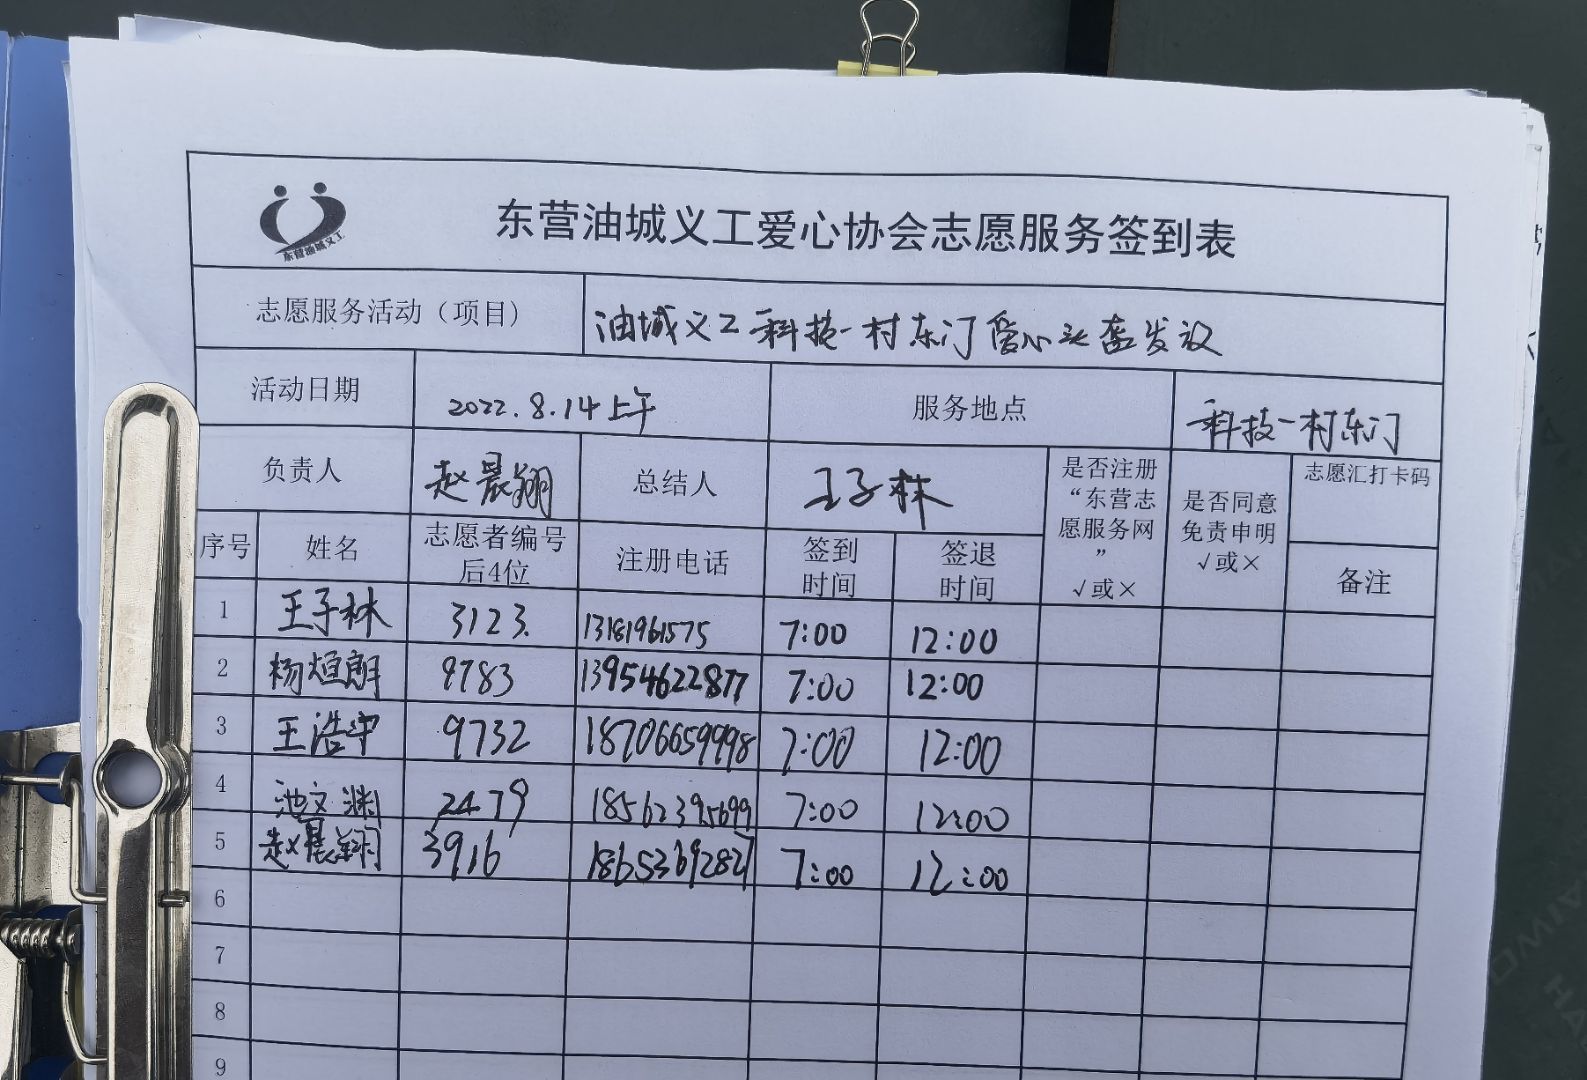 东营油城义工
东营油城义工爱心协会志愿服务签到表
志愿服务活动（项目） 油城义工科技一村东门爱心头盔发放
活动日期 2022.8.14上午 服务地点 科技一村东门
负责人 赵晨翔 总结人 王子林 是否注册“东营志愿服务网” √或× 是否同意免责申明 √或× 志愿汇打卡码
序号 姓名 志愿者编号后4位 注册电话 签到时间 签退时间 备注
1 王子林 3123. 13181961575 7:00 12:00
2 杨烜朗 9783 13954622877 7:00 12:00
3 王浩宇 9732 18706659998 7:00 12:00
4 池文渊 2479 18562395699 7:00 12:00
5 赵晨翔 3916 18653692827 7:00 12:00
6
7
8
9